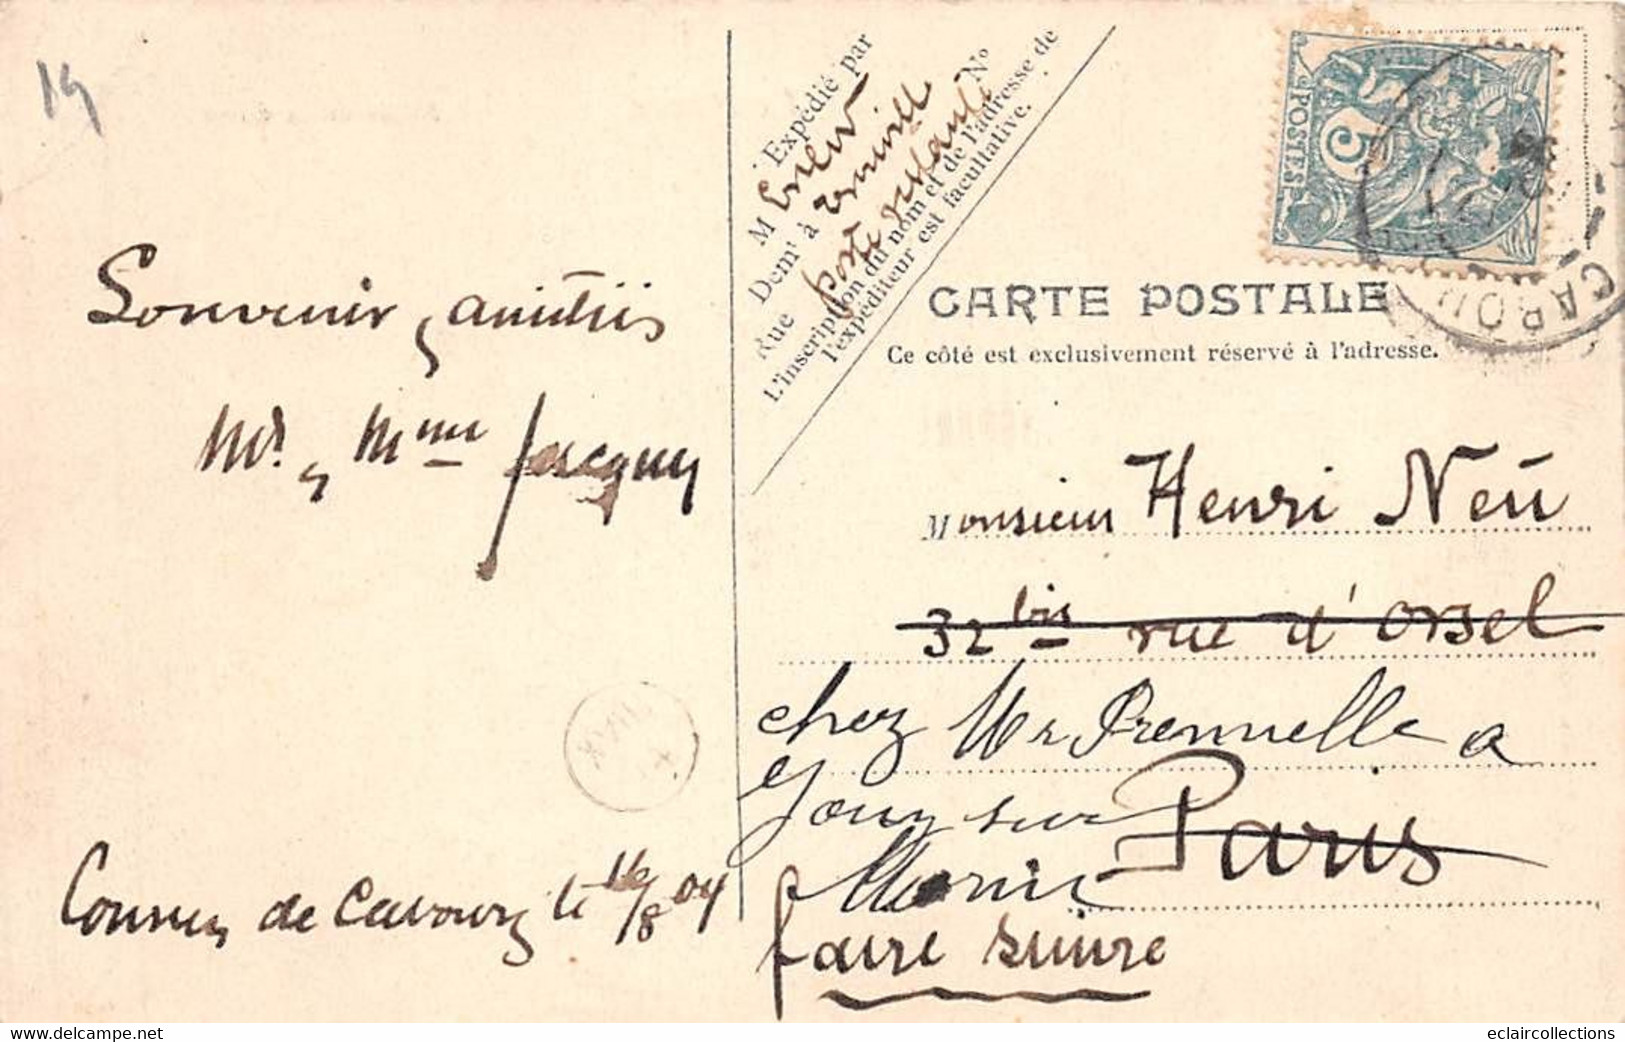 19
Souvenir, amitiés
Mr. , Mme Jacquy
de Cabourg le 16/8 04
Expédié par
M
Demt à
poste restante
Rue N°
L'inscription du nom et de l'adresse de
l'expéditeur est facultative.
POSTES
5
CABOURG
CARTE POSTALE
Ce côté est exclusivement réservé à l'adresse.
Monsieur Henri Neü
32 bis rue d'Orsel
chez Mr Prennelle a
Jouy sur
Paris
Morin
faire suivre
eclaircollections